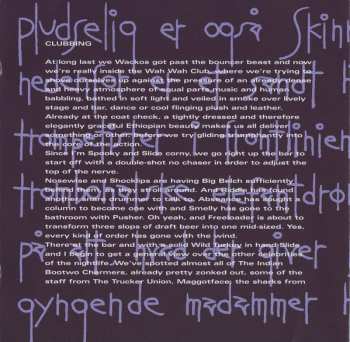 pludselig er også Skinn
CLUBBING
At long last we Wackos got past the bouncer beast and now
we're really inside the Wah Wah Club, where we're trying to
shove ourselves up against the pressure of an already dense
and heavy atmosphere of equal parts music and human
babbling, bathed in soft light and veiled in smoke over lively
stage and bar, dance or cool flinging plush and leather.
Already at the coat check, a tightly dressed and therefore
elegantly erected Ethiopian beauty makes us all deliver
something or other, before we try gliding triumphantly into
the core of the action.
Since I'm Spooky and Slide corny, we go right up the bar to
start off with a double-shot no chaser in order to adjust the
top of the nerve.
Nosewise and Shocklips are having Big Belch sufficient
behind them so they stroll around. And Rudder has found
another sunken lady to small talk to. Absentee has sought a
column to become one with and Smelly has gone to the
bathroom with Pusher. Oh yeah, and Freeloader is about to
transform three slops of draft beer into one mid-sized. Yes,
every kind of order has gone with the wind.
There's the bar and with a solid Wild Turkey in hand Slide
and I begin to get a general view over the other celebrities
of the nightlife. We've spotted almost all of The Indian
Bootwo Charmers, already pretty zonked out, some of the
staff from The Trucker Union, Maggotface; the sharks from
i frontlinien
på alt hvad der giver
gyngende madammer